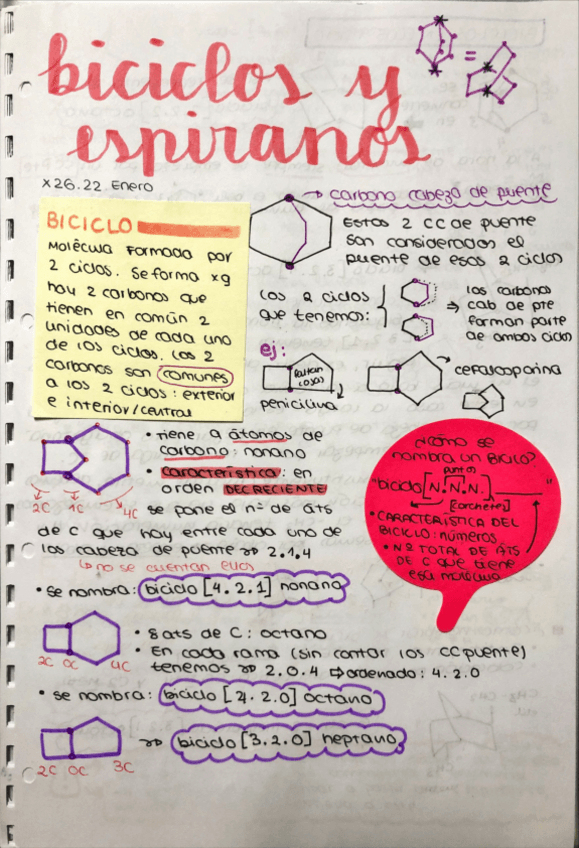 biciclos y
=
espiranos
x26.22 Enero
BICICLO
Molécula formada por
2 ciclos. Se forma xq
hay 2 carbonos que
tienen en común 2
unidades de cada uno
de los ciclos. Los 2
carbonos son comunes
a los 2 ciclos: exterior
e interior/central
→ carbono cabeza de puente
Estos 2 CC de puente
son considerados el
puente de esos 2 ciclos
Los 2 ciclos
que tenemos:
⇒ los carbonos
cab de pte
forman parte
de ambos ciclos
ej:
faltan
cosas
penicilina
cefalosporina
• tiene 9 átomos de
carbono: nonano
• Característica: en
orden DECRECIENTE
se pone el nº de áts
de C que hay entre cada uno de
los cabeza de puente ⇝ 2.1.4
↳ no se cuentan ellos
2C 1C 4C
• se nombra: biciclo [4.2.1] nonano
¿Cómo se
nombra un BICICLO?
puntos
"biciclo [N.N.N.] ______"
[corchetes]
• CARACTERÍSTICA DEL
BICICLO: números
• Nº TOTAL DE ÁTS
DE C que tiene
esa molécula
• 8 ats de C: octano
• En cada rama (sin contar los CC puente)
tenemos ⇝ 2.0.4 ⇒ ordenado: 4.2.0
2C 0C 4C
• se nombra: biciclo [4.2.0] octano
⇝ biciclo [3.2.0] heptano
2C 0C 3C